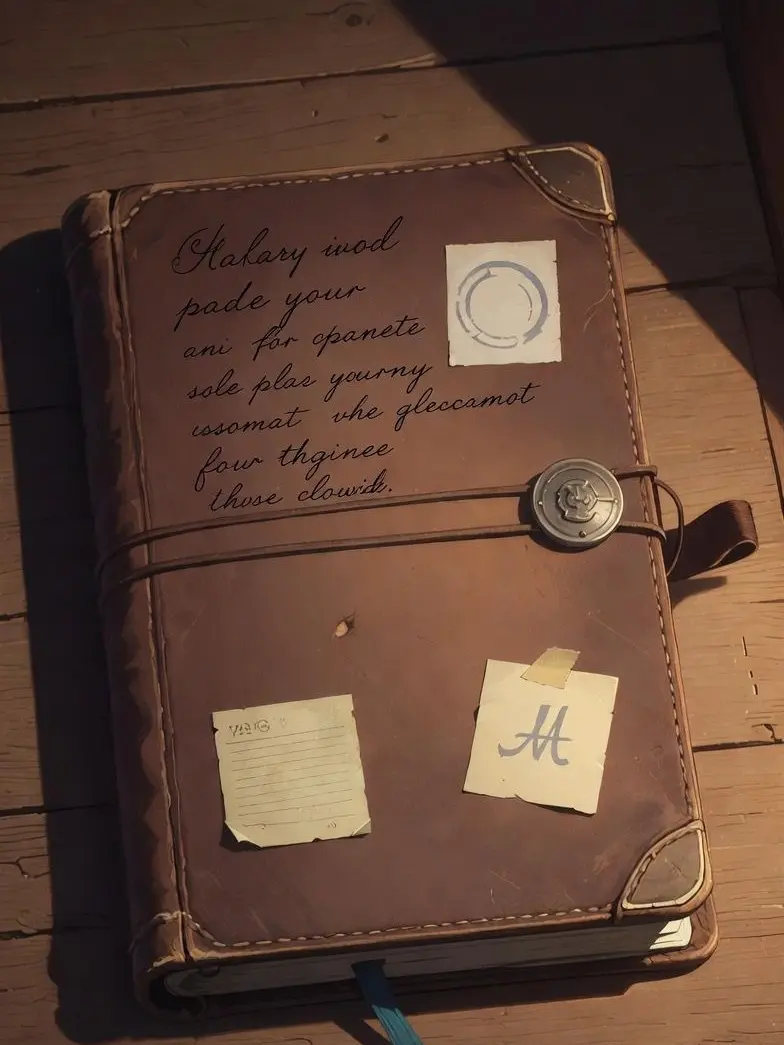 Hakary ivod
pade your
ani för opanete
sole plas yourny
issomat vhe gleccamot
four thginee
those clowidk.
M